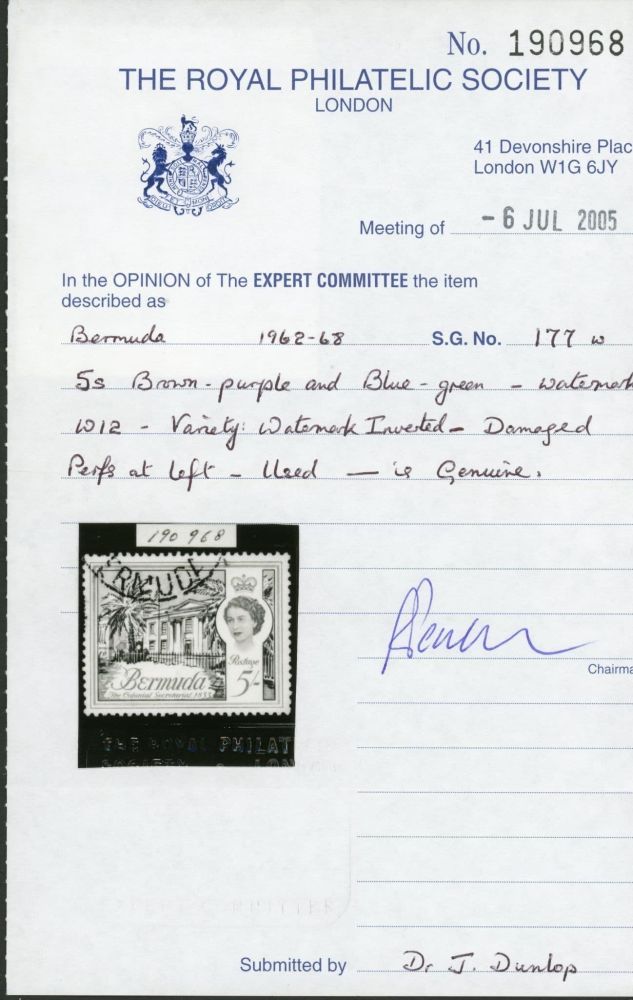 No. 190968
THE ROYAL PHILATELIC SOCIETY
LONDON
41 Devonshire Plac
London W1G 6JY
Meeting of - 6 JUL 2005
In the OPINION of The EXPERT COMMITTEE the item
described as
Bermuda 1962-68 S.G. No. 177 w
5s Brown-purple and Blue-green - watermark
W12 - Variety: Watermark Inverted - Damaged
Perfs at left - Used - is Genuine.
190 968
ERMUDA
Postage
Bermuda 5/-
The Colonial Secretariat 1833
THE ROYAL PHILAT
SOCIETY LON
Chairma
Submitted by Dr J. Dunlop